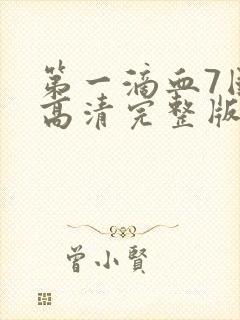 第一滴血7国
高清完整版
曾小贤